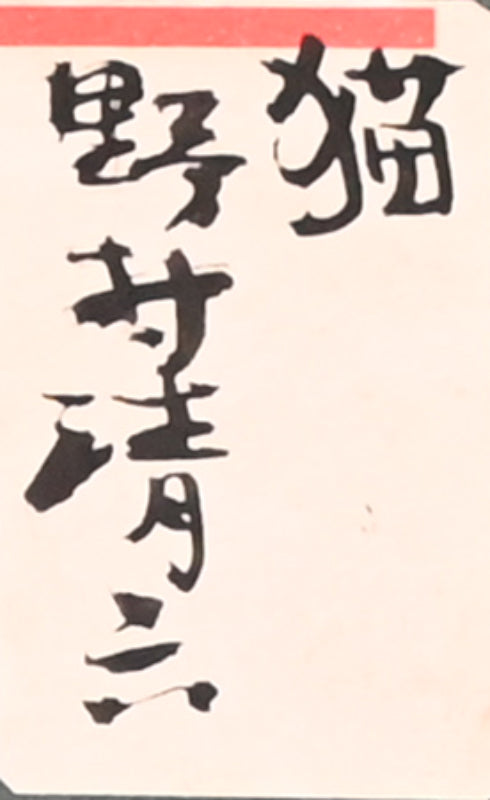 猫
野村清六